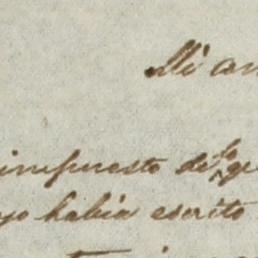 Mi am
impuesto de lo ge
yo habia escrito